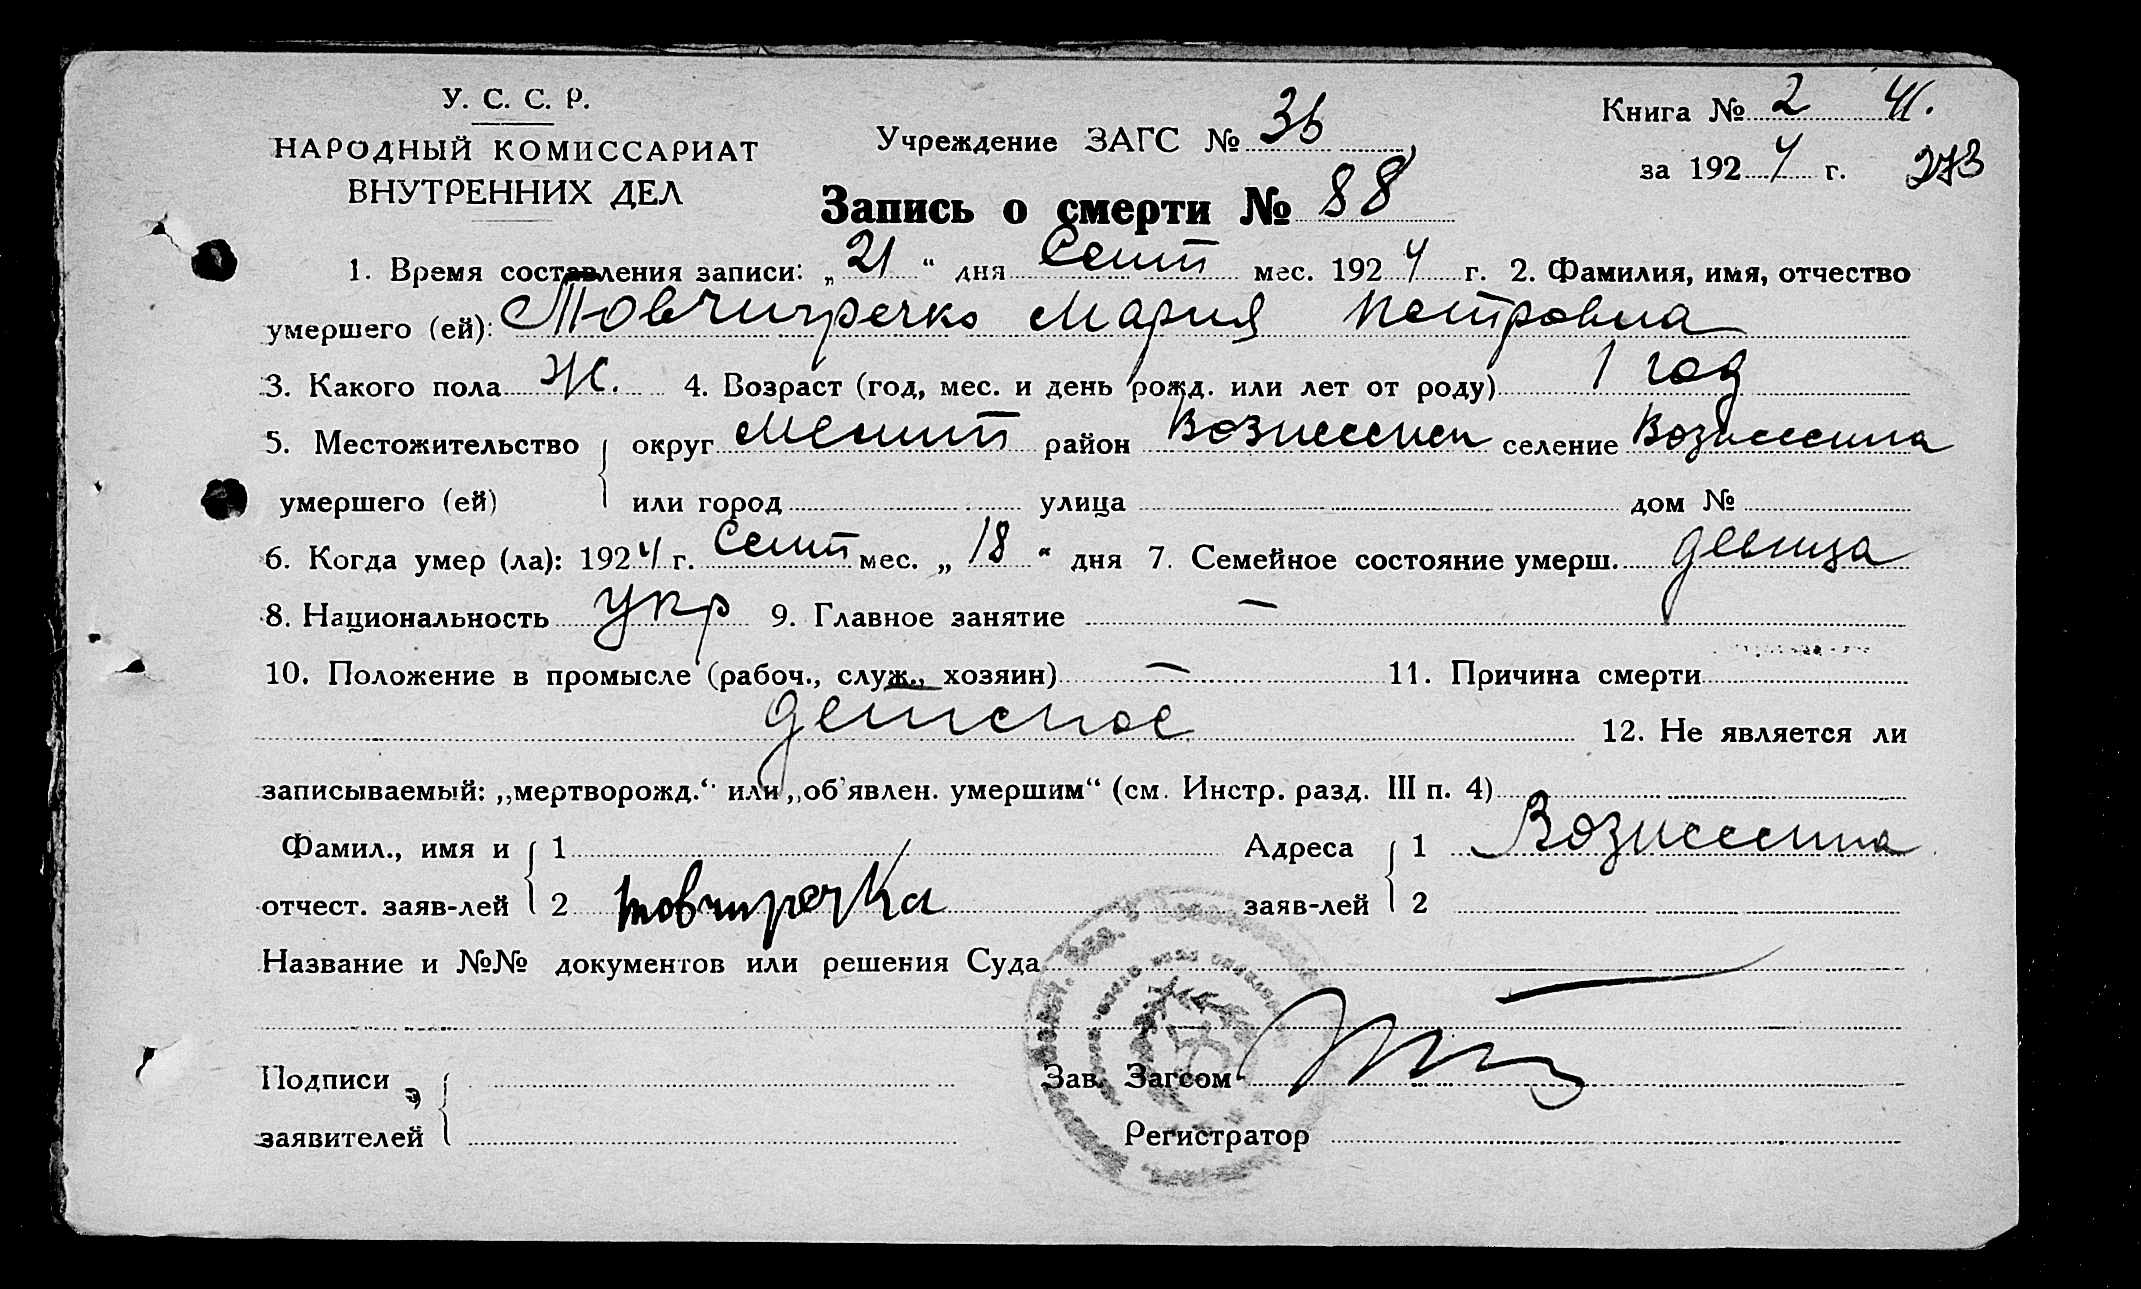 У. С. С. Р.
НАРОДНЫЙ КОМИССАРИАТ
ВНУТРЕННИХ ДЕЛ
Учреждение ЗАГС № 36
Книга № 2 41.
за 1924 г. 273
Запись о смерти № 88
1. Время составления записи: „21“ дня Сент мес. 1924 г. 2. Фамилия, имя, отчество
умершего (ей): Товчигречко Мария Петровна
3. Какого пола Ж. 4. Возраст (год, мес. и день рожд. или лет от роду) 1 год
5. Местожительство округ Мелит район Вознесенск селение Вознесенка
умершего (ей) или город улица дом №
6. Когда умер (ла): 1924 г. Сент мес. „18“ дня 7. Семейное состояние умерш. девица
8. Национальность укр 9. Главное занятие —
10. Положение в промысле (рабоч., служ., хозяин) — 11. Причина смерти
детское 12. Не является ли
записываемый: „мертворожд.“ или „об'явлен. умершим“ (см. Инстр. разд. III п. 4)
Фамил., имя и 1 Адреса 1 Вознесенка
отчест. заяв-лей 2 товчигречка заяв-лей 2
Название и №№ документов или решения Суда —
Подписи Зав. Загсом
заявителей Регистратор